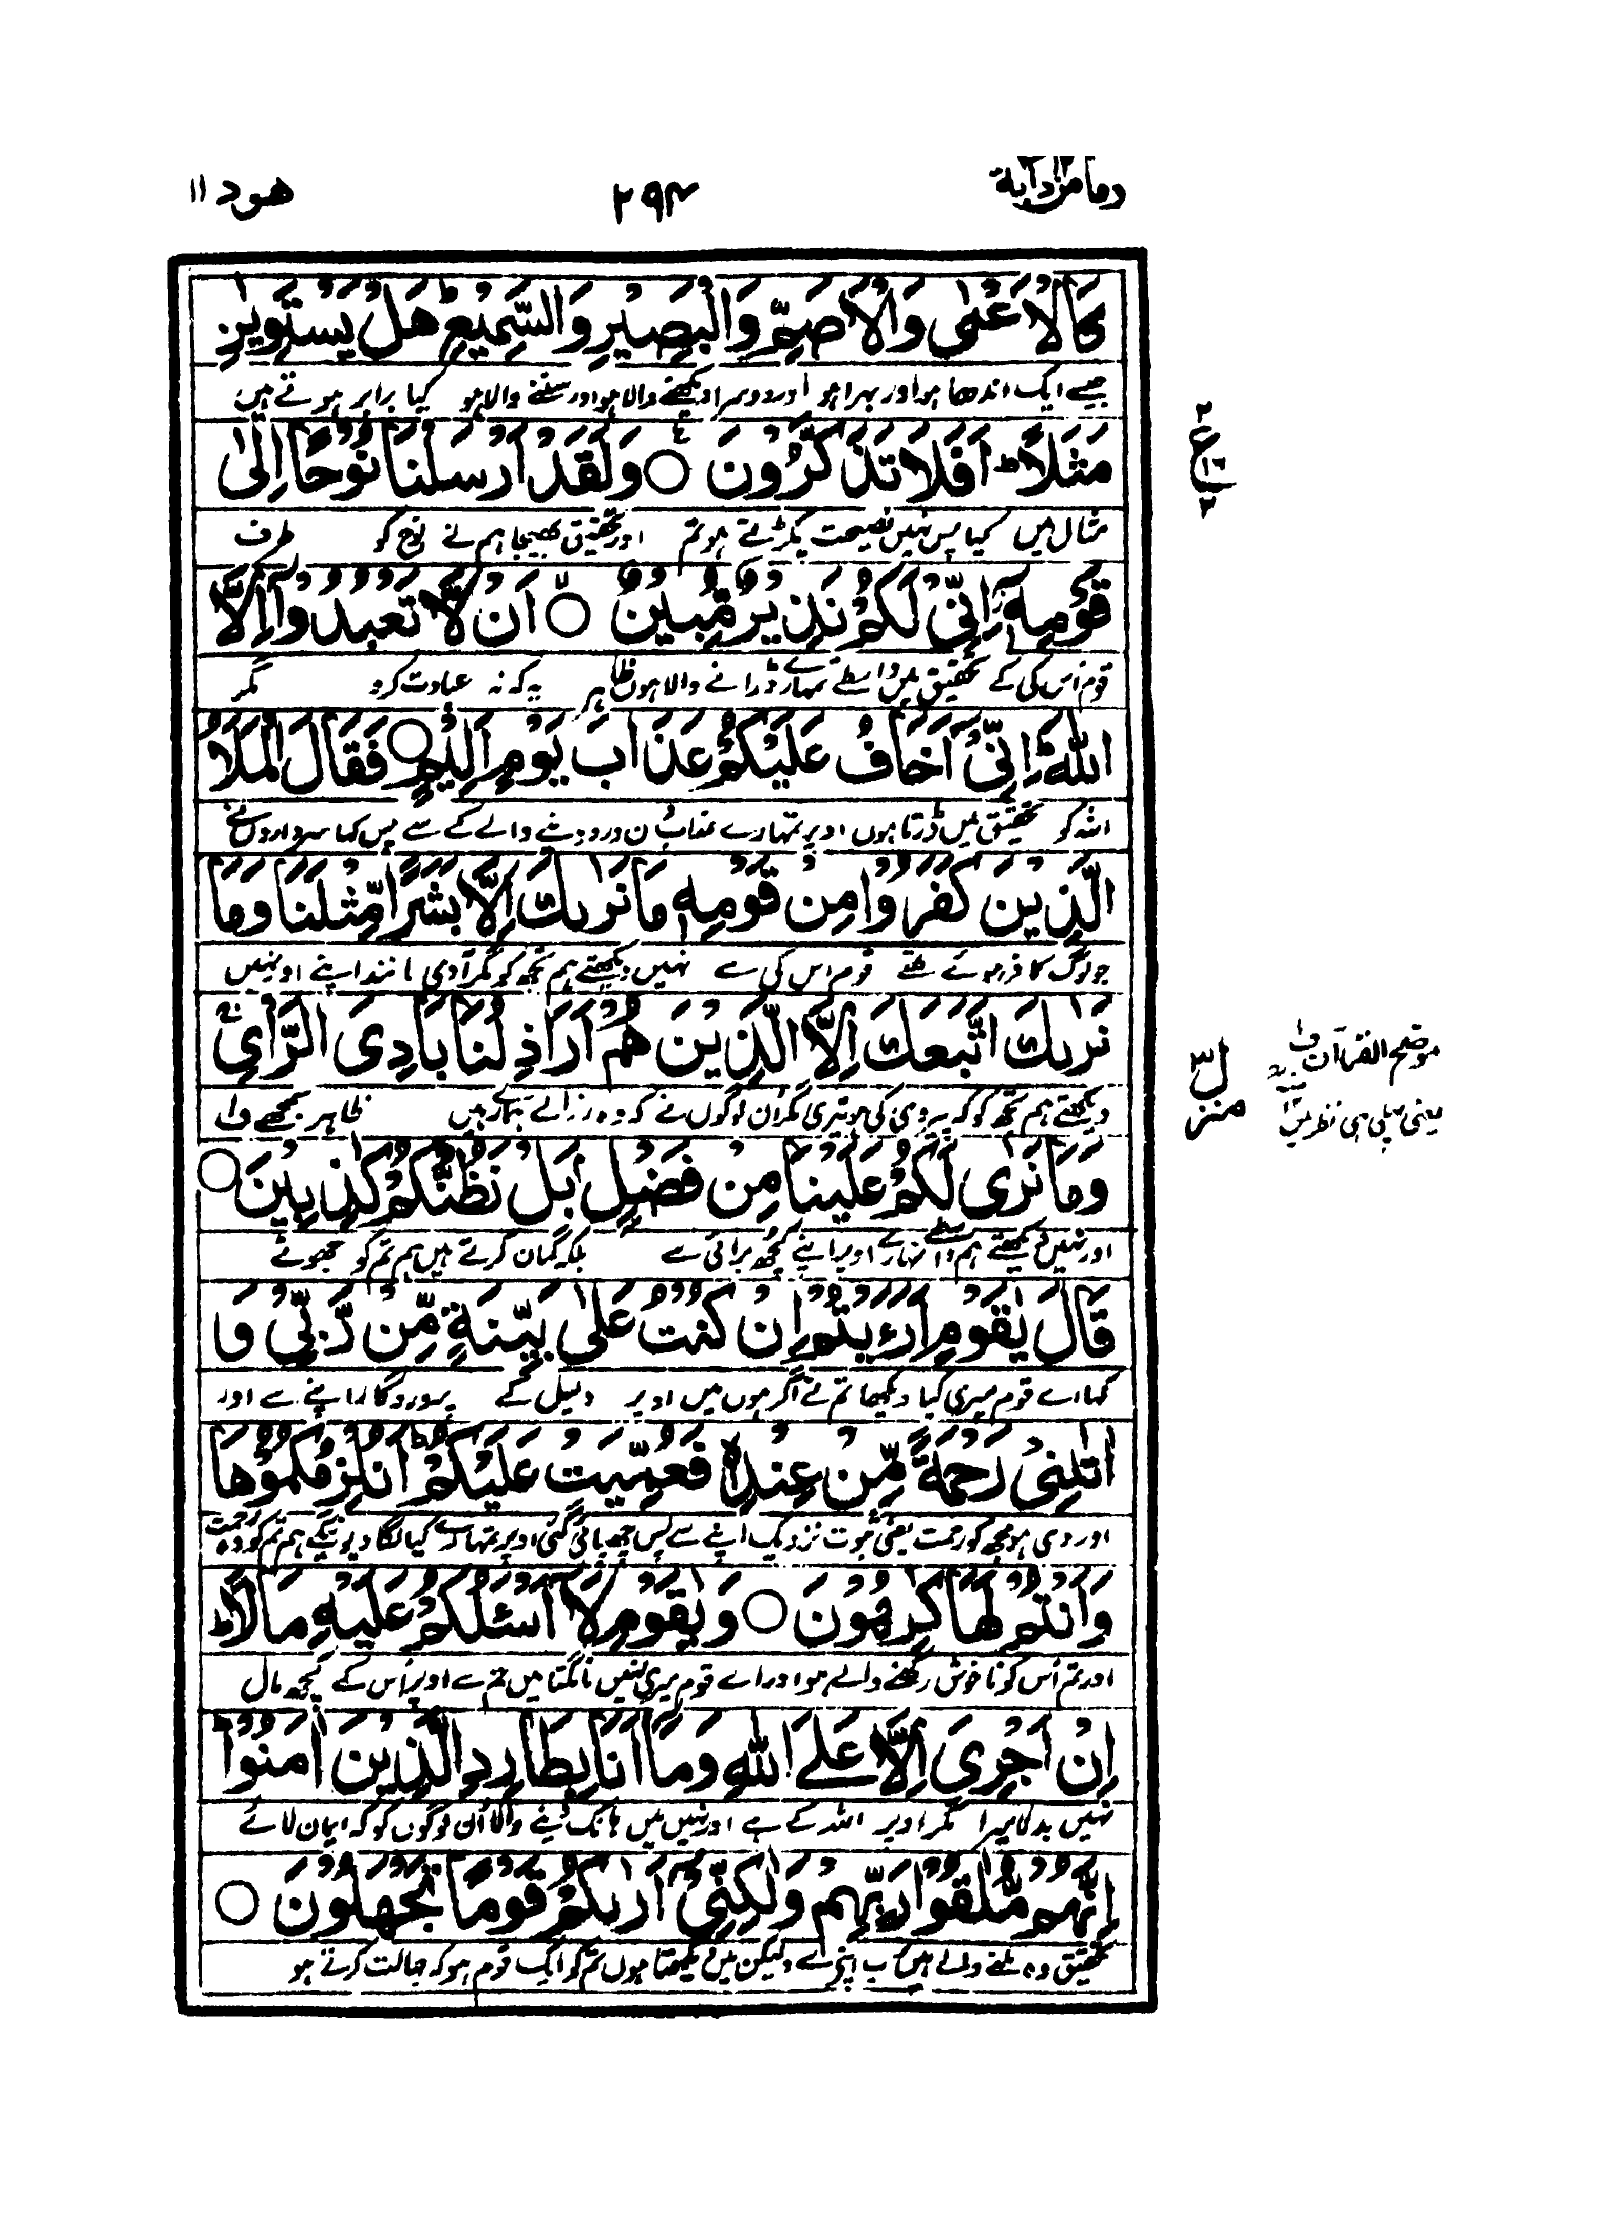 وما من دابة ١٢
٢٩٤
هود ١١
كَالْاَعْمٰى وَالْاَصَمِّ وَالْبَصِيْرِ وَالسَّمِيْعِ ؕ هَلْ يَسْتَوِيٰنِ
جیسے ایک اندھا ہو اور بہرا ہو اور دوسرا دیکھنے والا ہو اور سننے والا ہو کیا برابر ہوتے ہیں
مَثَلًا ؕ اَفَلَا تَذَكَّرُوْنَ ○ وَلَقَدْ اَرْسَلْنَا نُوْحًا اِلٰى
مثال میں کیا پس نہیں نصیحت پکڑتے ہو تم اور تحقیق بھیجا ہم نے نوح کو طرف
قَوْمِهٖٓ اِنِّيْ لَكُمْ نَذِيْرٌ مُّبِيْنٌ ○ اَنْ لَّا تَعْبُدُوْٓا اِلَّا
قوم اُس کی کے تحقیق میں واسطے تمہارے ڈرانے والا ہوں ظاہر یہ کہ نہ عبادت کرو مگر
اللّٰهَ ؕ اِنِّيْٓ اَخَافُ عَلَيْكُمْ عَذَابَ يَوْمٍ اَلِيْمٍ ○ فَقَالَ الْمَلَاُ
اللہ کو تحقیق میں ڈرتا ہوں اوپر تمہارے عذاب دن درد دینے والے کے سے پس کہا سرداروں نے
الَّذِيْنَ كَفَرُوْا مِنْ قَوْمِهٖ مَا نَرٰىكَ اِلَّا بَشَرًا مِّثْلَنَا وَمَا
جو لوگ کافر ہوئے تھے قوم اس کی سے نہیں دیکھتے ہم تجھ کو مگر آدمی مانند اپنے اور نہیں
نَرٰىكَ اتَّبَعَكَ اِلَّا الَّذِيْنَ هُمْ اَرَاذِلُنَا بَادِيَ الرَّاْيِ ۚ
دیکھتے ہم تجھ کو کہ پیروی کی ہو تیری مگر اُن لوگوں نے کہ وہ رزالے ہمارے ہیں ظاہر سمجھے ف۱
وَمَا نَرٰى لَكُمْ عَلَيْنَا مِنْ فَضْلٍۭ بَلْ نَظُنُّكُمْ كٰذِبِيْنَ ○
اور نہیں دیکھتے ہم واسطے تمہارے اوپر اپنے کچھ بڑائی سے بلکہ گمان کرتے ہیں ہم تم کو جھوٹے
قَالَ يٰقَوْمِ اَرَءَيْتُمْ اِنْ كُنْتُ عَلٰى بَيِّنَةٍ مِّنْ رَّبِّيْ وَ
کہا اے قوم میری کیا دیکھا تم نے اگر ہوں میں اوپر دلیل کے پروردگار اپنے سے اور
اٰتٰىنِيْ رَحْمَةً مِّنْ عِنْدِهٖ فَعُمِّيَتْ عَلَيْكُمْ ؕ اَنُلْزِمُكُمُوْهَا
اور دی ہو مجھ کو رحمت یعنی نبوت نزدیک اپنے سے پس چھپائی گئی اوپر تمہارے کیا لگا دیوینگے ہم تم کو وہ رحمت
وَاَنْتُمْ لَهَا كٰرِهُوْنَ ○ وَيٰقَوْمِ لَآ اَسْـَٔلُكُمْ عَلَيْهِ مَالًا ؕ
اور تم اُس کو ناخوش رکھنے والے ہو اور اے قوم میری نہیں مانگتا میں تم سے اوپر اُس کے کچھ مال
اِنْ اَجْرِيَ اِلَّا عَلَى اللّٰهِ وَمَآ اَنَا بِطَارِدِ الَّذِيْنَ اٰمَنُوْا ؕ
نہیں بدلا میرا مگر اوپر اللہ کے ہے اور نہیں میں ہانک دینے والا اُن لوگوں کو کہ ایمان لائے
اِنَّهُمْ مُّلٰقُوْا رَبِّهِمْ وَلٰكِنِّيْٓ اَرٰىكُمْ قَوْمًا تَجْهَلُوْنَ ○
تحقیق وہ ملنے والے ہیں رب اپنے سے ولیکن میں دیکھتا ہوں تم کو ایک قوم ہو کہ جہالت کرتے ہو
٢
ع
٢
منزل ٣
موضح القرآن ف۱
یعنی پہلی ہی نظر میں